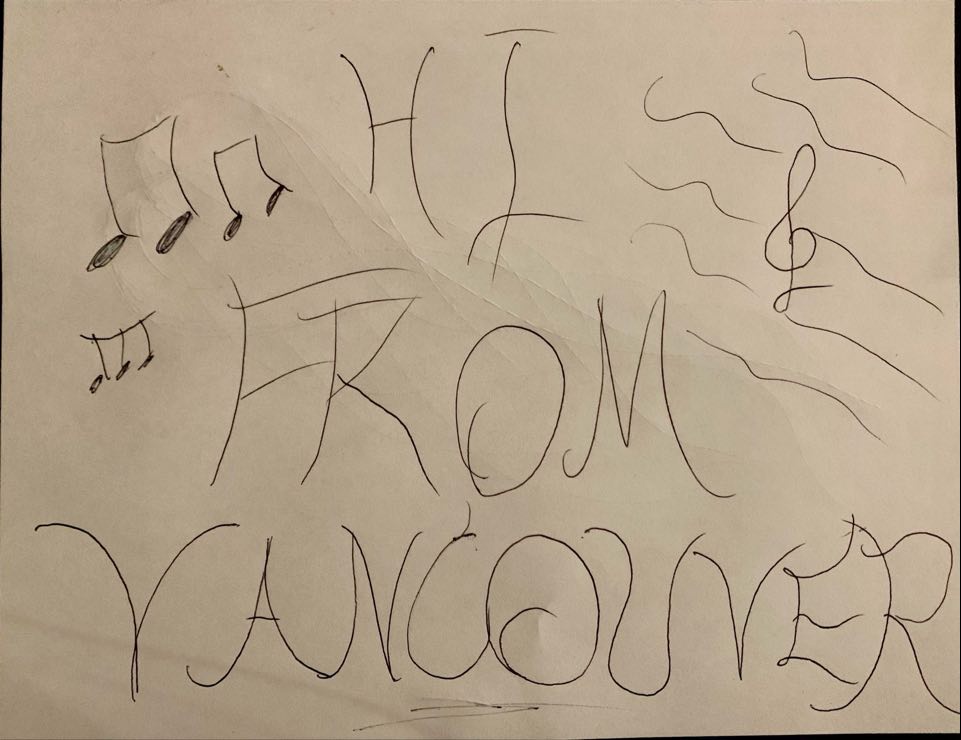 HI
FROM
VANCOUVER